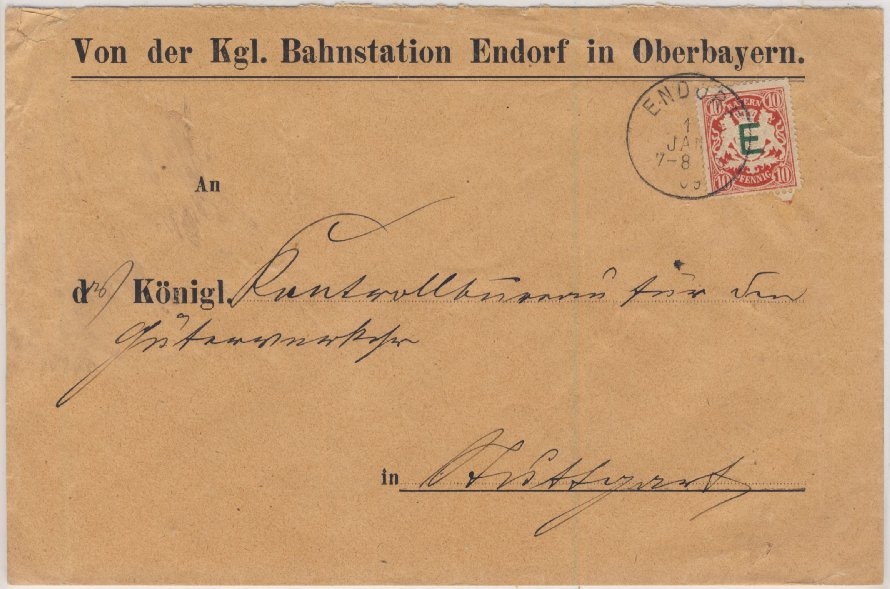 Von der Kgl. Bahnstation Endorf in Oberbayern.
ENDORF
1
JAN
7-8
09
10 BAYERN 10
E
10 PFENNIG 10
An
das Königl. Kontrollbureau für den
Güterverkehr
in Stuttgart